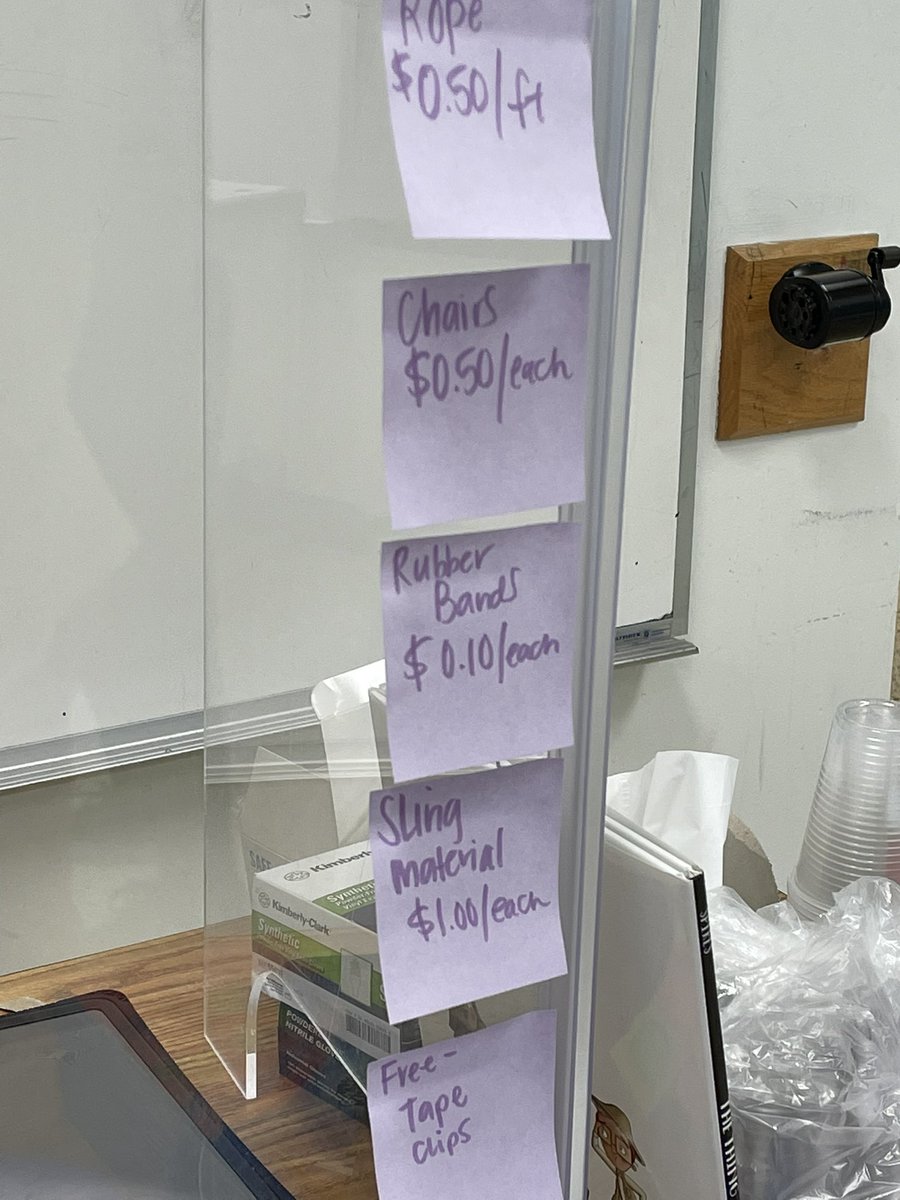 Rope
$0.50/ft
Chairs
$0.50/each
Rubber
Bands
$0.10/each
Sling
material
$1.00/each
Free-
Tape
clips
SAFE
Kimberly
Synthetic
Kimberly-Clark
Synthetic
NITRILE GLO